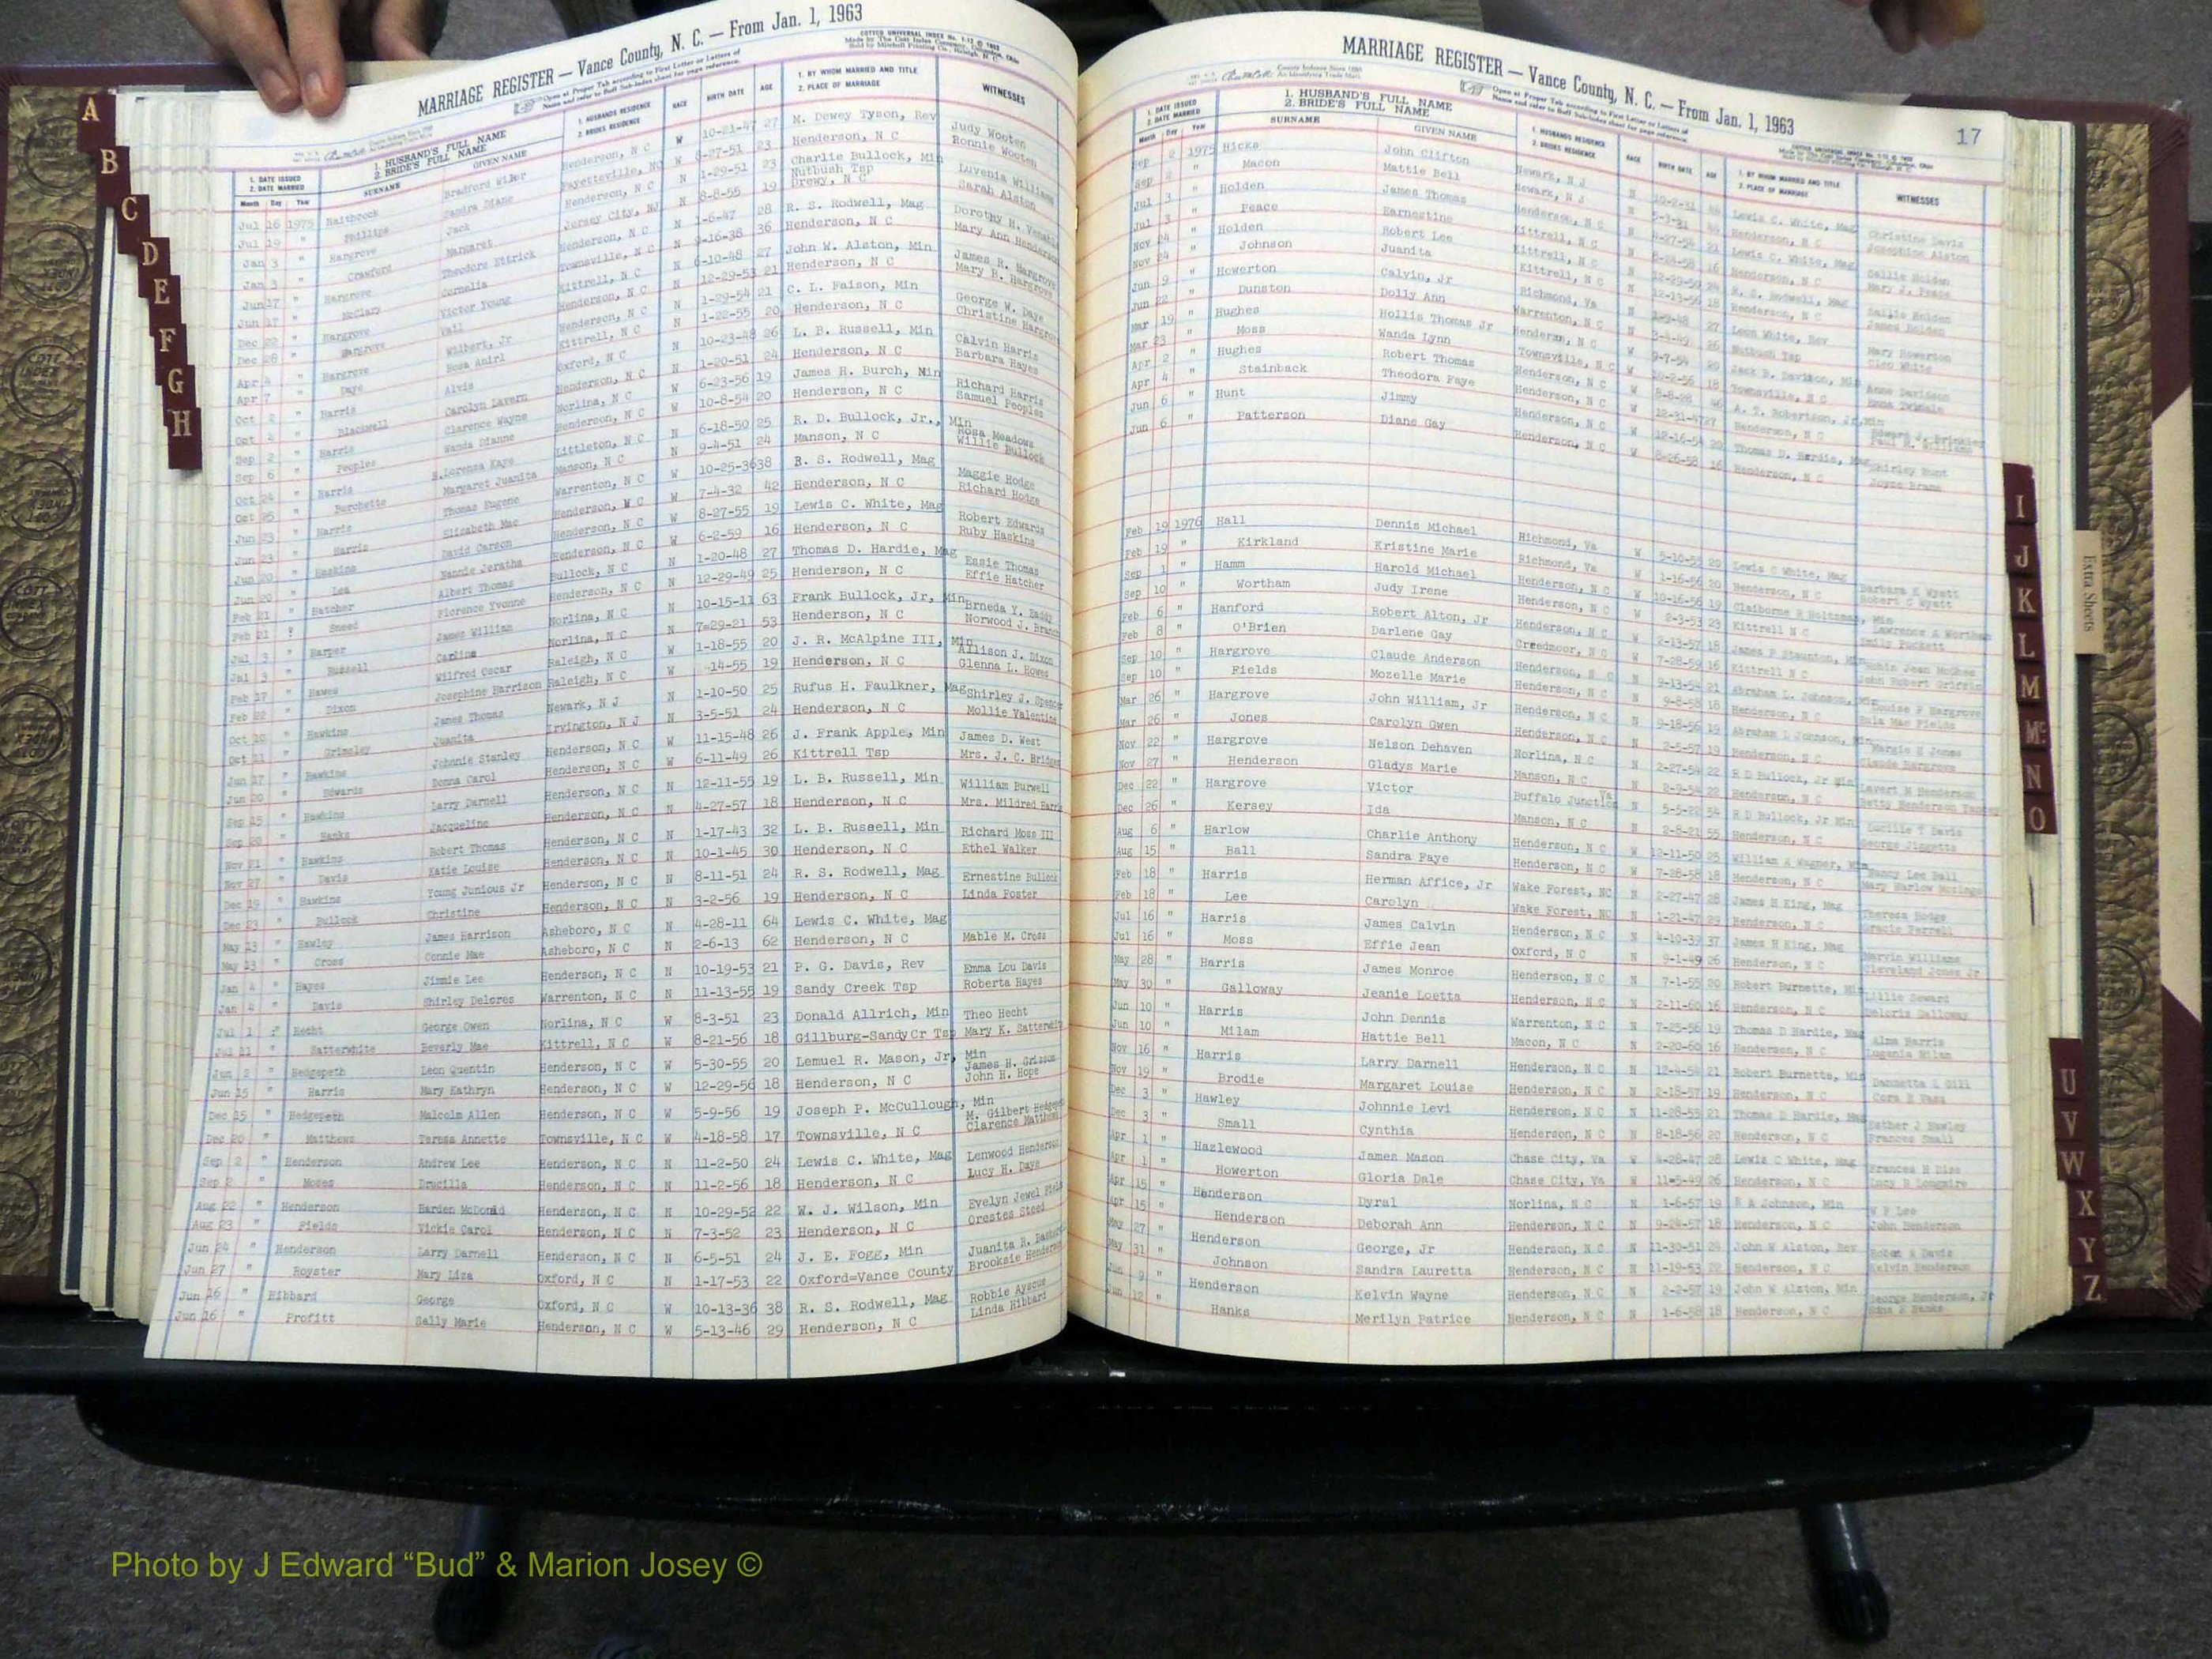 MARRIAGE REGISTER — Vance County, N. C. — From Jan. 1, 1963
COTT'S UNIVERSAL INDEX
Open at Proper Tab according to First Letter or Letters of
Name and refer to Buff Sub-Index sheet for page reference.
1. DATE ISSUED 2. DATE MARRIED 1. HUSBAND'S FULL NAME 2. BRIDE'S FULL NAME 1. HUSBANDS RESIDENCE 2. BRIDES RESIDENCE RACE BIRTH DATE AGE 1. BY WHOM MARRIED AND TITLE 2. PLACE OF MARRIAGE WITNESSES
Month Day Year SURNAME GIVEN NAME
Jul 16 1975 Haithcock Henderson, N C W 10-21-47 27 M. Dewey Tyson, Rev Judy Wooten
Jul 19 " Phillips Sandra Diane Fayetteville, NC W 8-27-51 23 Henderson, N C Ronnie Wooten
Jan 3 " Hargrove Jack Henderson, N C N 1-29-51 23 Charlie Bullock, Min Luvenia Williams
Jan 3 " Crawford Margaret Jersey City, NJ N 8-8-55 19 Nutbush Tsp Drewy, N C Sarah Alston
Jun 17 " Hargrove Theodore Henderson, N C N 1-6-47 28 R. S. Rodwell, Mag Dorothy H.
Jun 17 " McClary Cornelia Townsville, N C N 9-16-38 36 Henderson, N C Mary Ann Henderson
Dec 22 " Hargrove Victor Young Kittrell, N C N 6-10-48 27 John W. Alston, Min James R. Hargrove
Dec 28 " Hargrove Henderson, N C N 12-29-53 21 Henderson, N C Mary B. Hargrove
Apr 4 " Hargrove Wilbert, Jr Kittrell, N C N 1-29-54 21 C. L. Faison, Min George W. Daye
Apr 7 " Daye Rosa Oxford, N C N 1-22-55 20 Henderson, N C Christine Hargrove
Oct 2 " Harris Alvis Henderson, N C N 10-23-48 26 L. B. Russell, Min Calvin Harris
Oct 4 " Blackwell Carolyn Lavern Norlina, N C N 1-20-51 24 Henderson, N C Barbara Hayes
Sep 2 " Harris Clarence Wayne Henderson, N C W 6-23-56 19 James H. Burch, Min Richard Harris
Sep 6 " Peoples Wanda Dianne W 10-8-54 20 Henderson, N C Samuel Peoples
Oct 24 " Harris Littleton, N C N 6-18-50 25 R. D. Bullock, Jr., Min Rosa Meadows
Oct 25 " Burchette Margaret Juanita Manson, N C N 9-4-51 24 Manson, N C Willie Bullock
Jun 23 " Harris Thomas Eugene Warrenton, N C W 10-25-36 38 R. S. Rodwell, Mag Maggie Hodge
Jun 23 " Harris Elizabeth Mae Henderson, N C W 7-4-32 42 Henderson, N C Richard Hodge
Jun 20 " Haskins David Carson Henderson, N C W 8-27-55 19 Lewis C. White, Mag Robert Edwards
Jun 20 " Lea Nannie Jeraths Henderson, N C W 6-2-59 16 Henderson, N C Ruby Haskins
Feb 21 " Hatcher Albert Thomas Bullock, N C N 1-20-48 27 Thomas D. Hardie, Mag Essie Thomas
Feb 21 " Sneed Florence Yvonne Henderson, N C N 12-29-49 25 Henderson, N C Effie Hatcher
Jul 3 " Harper James William Norlina, N C N 10-15-11 63 Frank Bullock, Jr, Min Brneda Y. Eaddy
Jul 3 " Russell Carline Norlina, N C N 7-29-21 53 Henderson, N C Norwood J.
Feb 17 " Hawes Wilfred Oscar Raleigh, N C W 1-18-55 20 J. R. McAlpine III, Min Allison J. Dixon
Feb 22 " Dixon Josephine Harrison Raleigh, N C W 14-55 19 Henderson, N C Glenna L. Hawes
Oct 10 " Hawkins James Thomas Newark, N J N 1-10-50 25 Rufus H. Faulkner, Mag Shirley J. Spencer
Oct 11 " Grimsley Juanita Irvington, N J N 3-5-51 24 Henderson, N C Mollie Valentine
Jun 17 " Hawkins Johnnie Stanley Henderson, N C W 11-15-48 26 J. Frank Apple, Min James D. West
Jun 20 " Edwards Donna Carol Henderson, N C W 6-11-49 26 Kittrell Tsp Mrs. J. C. Bridges
Sep 15 " Hawkins Larry Darnell Henderson, N C N 12-11-55 19 L. B. Russell, Min William Burwell
Sep 20 " Hanks Jacqueline Henderson, N C N 4-27-57 18 Henderson, N C Mrs. Mildred Harris
Nov 21 " Hawkins Robert Thomas Henderson, N C N 1-17-43 32 L. B. Russell, Min Richard Moss III
Nov 27 " Davis Katie Louise Henderson, N C N 10-1-45 30 Henderson, N C Ethel Walker
Dec 19 " Hawkins Young Junious Jr Henderson, N C N 8-11-51 24 R. S. Rodwell, Mag Ernestine Bullock
Dec 23 " Bullock Christine Henderson, N C N 3-2-56 19 Henderson, N C Linda Foster
May 13 " Hawley James Harrison Asheboro, N C N 4-28-11 64 Lewis C. White, Mag
May 13 " Cross Connie Mae Asheboro, N C N 2-6-13 62 Henderson, N C Mable M. Cross
Jan 4 " Hayes Jimmie Lee Henderson, N C N 10-19-53 21 P. G. Davis, Rev Emma Lou Davis
Jan 4 " Davis Shirley Delores Warrenton, N C N 11-13-55 19 Sandy Creek Tsp Roberta Hayes
Jul 1 " Hecht George Owen Norlina, N C W 8-3-51 23 Donald Allrich, Min Theo Hecht
Jul 11 " Satterwhite Beverly Mae Kittrell, N C W 8-21-56 18 Gillburg-SandyCr Tsp Mary K. Satterwhite
Jun 2 " Hedgepeth Leon Quentin Henderson, N C W 5-30-55 20 Lemuel R. Mason, Jr, Min James H. Grissom
Jun 15 " Harris Mary Kathryn Henderson, N C W 12-29-56 18 Henderson, N C John H. Hope
Dec 15 " Hedgepeth Malcolm Allen Henderson, N C W 5-9-56 19 Joseph P. McCullough, Min M. Gilbert Hedgepeth
Dec 20 " Matthews Teresa Annette Townsville, N C W 4-18-58 17 Townsville, N C Clarence Matthews
Sep 2 " Henderson Andrew Lee Henderson, N C N 11-2-50 24 Lewis C. White, Mag Lenwood Henderson
Sep 2 " Moses Drucilla Henderson, N C N 11-2-56 18 Henderson, N C Lucy H. Daye
Aug 22 " Henderson Harden McDonald Henderson, N C N 10-29-52 22 W. J. Wilson, Min Evelyn Jewel
Aug 23 " Fields Vickie Carol Henderson, N C N 7-3-52 23 Henderson, N C Orestes Steed
Jun 24 " Henderson Larry Darnell Henderson, N C N 6-5-51 24 J. E. Fogg, Min Juanita R.
Jun 27 " Royster Mary Liza Oxford, N C N 1-17-53 22 Oxford=Vance County Brooksie Henderson
Jun 16 " Hibbard George Oxford, N C W 10-13-36 38 R. S. Rodwell, Mag Robbie Ayscue
Jun 16 " Profitt Sally Marie Henderson, N C W 5-13-46 29 Henderson, N C Linda Hibbard
MARRIAGE REGISTER — Vance County, N. C. — From Jan. 1, 1963
17
Open at Proper Tab according to First Letter or Letters of
Name and refer to Buff Sub-Index sheet for page reference.
1. DATE ISSUED 2. DATE MARRIED 1. HUSBAND'S FULL NAME 2. BRIDE'S FULL NAME 1. HUSBANDS RESIDENCE 2. BRIDES RESIDENCE RACE BIRTH DATE AGE 1. BY WHOM MARRIED AND TITLE 2. PLACE OF MARRIAGE WITNESSES
Month Day Year SURNAME GIVEN NAME
Sep 2 1975 Hicks John Clifton Newark, N J N 10-2-31 Lewis C. White, Mag Christine Davis
Sep 2 " Macon Mattie Bell Newark, N J N 5-3-31 Henderson, N C Josephine Alston
Jul 3 " Holden James Thomas Henderson, N C N 4-27-54 21 Lewis C. White, Mag Sallie Holden
Jul 3 " Peace Earnestine Kittrell, N C N 8-24-58 16 Henderson, N C Mary J. Peace
Nov 24 " Holden Robert Lee Kittrell, N C N 12-29-50 24 R. S. Rodwell, Mag Sallie Holden
Nov 24 " Johnson Juanita Kittrell, N C N 12-13-56 18 Henderson, N C James Holden
Jun 9 " Howerton Calvin, Jr Richmond, Va N 1-9-48 27 Leon White, Rev Mary Howerton
Jun 22 " Dunston Dolly Ann Warrenton, N C N 3-4-49 26 Nutbush Tsp Cleo White
Mar 19 " Hughes Hollis Thomas Jr Henderson, N C W 9-7-54 20 Jack B. Davison, Min Anne Davidson
Mar 23 " Moss Wanda Lynn Townsville, N C W 10-2-56 18 Townsville, N C
Apr 2 " Hughes Robert Thomas Henderson, N C W 5-8-28 46 A. T. Robertson, Jr, Min
Apr 4 " Stainback Theodora Faye Henderson, N C W 12-31-47 27 Henderson, N C
Jun 6 " Hunt Jimmy Henderson, N C W 12-16-54 20 Thomas D. Hardie, Mag Shirley Hunt
Jun 6 " Patterson Diane Gay Henderson, N C W 8-26-58 16 Henderson, N C Joyce
Feb 19 1976 Hall Dennis Michael Richmond, Va W 5-10-55 20 Lewis C White, Mag Barbara K Wyatt
Feb 19 " Kirkland Kristine Marie Richmond, Va W 1-16-56 20 Henderson, N C Robert C Wyatt
Sep 1 " Hamm Harold Michael Henderson, N C W 10-16-56 19 Claiborne R Holtzman, Min Lawrence A Wortham
Sep 10 " Wortham Judy Irene Henderson, N C W 2-3-53 23 Kittrell N C Emily Puckett
Feb 6 " Hanford Robert Alton, Jr Creedmoor, N C W 2-13-57 18 James P Staunton, Min
Feb 8 " O'Brien Darlene Gay Henderson, N C W 7-28-59 16 Kittrell N C John Robert Griffin
Sep 10 " Hargrove Claude Anderson Henderson, N C N 9-13-54 21 Abraham L. Johnson, Min Louise P Hargrove
Sep 10 " Fields Mozelle Marie Henderson, N C N 9-8-58 18 Henderson, N C Eula Mae Fields
Mar 26 " Hargrove John William, Jr Henderson, N C N 9-18-56 19 Abraham L Johnson, Min Margie H Jones
Mar 26 " Jones Carolyn Gwen Henderson, N C N 2-5-57 19 Henderson, N C Claude Hargrove
Nov 22 " Hargrove Nelson Dehaven Norlina, N C N 2-27-54 22 R D Bullock, Jr Min Lavert H Henderson
Nov 27 " Henderson Gladys Marie Manson, N C N 2-9-54 22 Henderson, N C Betty Henderson
Dec 22 " Hargrove Victor Buffalo Junction Va N 5-5-22 54 R D Bullock, Jr Min Lucille T Davis
Dec 26 " Kersey Ida Manson, N C N 2-8-21 55 Henderson, N C George Jiggetts
Aug 6 " Harlow Charlie Anthony Henderson, N C W 12-11-50 25 William A Wagner, Min Nancy Lee Ball
Aug 15 " Ball Sandra Faye Henderson, N C W 7-28-58 18 Henderson, N C Mary Harlow
Feb 18 " Harris Herman Affice, Jr Wake Forest, NC N 2-27-47 28 James H King, Mag Theresa Hodge
Feb 18 " Lee Carolyn Wake Forest, NC N 1-21-47 29 Henderson, N C Gracie Ferrell
Jul 16 " Harris James Calvin Henderson, N C N 4-10-39 37 James H King, Mag Marvin Williams
Jul 16 " Moss Effie Jean Oxford, N C N 9-1-49 26 Henderson, N C Cleveland Jones Jr
May 28 " Harris James Monroe Henderson, N C N 7-1-55 20 Robert Burnette, Min Lillie Seward
May 30 " Galloway Jeanie Loetta Henderson, N C N 2-11-60 16 Henderson, N C Deloris Galloway
Jun 10 " Harris John Dennis Warrenton, N C N 7-25-56 19 Thomas D Hardie, Mag Alma Harris
Jun 10 " Milam Hattie Bell Macon, N C N 2-20-60 16 Henderson, N C Eugenia Milam
Nov 16 " Harris Larry Darnell Henderson, N C N 12-4-54 21 Robert Burnette, Min
Nov 19 " Brodie Margaret Louise Henderson, N C N 2-18-57 19 Henderson, N C Cora E Vass
Dec 3 " Hawley Johnnie Levi Henderson, N C N 11-28-55 21 Thomas D Hardie, Mag Esther J Hawley
Dec 3 " Small Cynthia Henderson, N C N 8-18-56 20 Henderson, N C Frances Small
Apr 1 " Hazlewood James Mason Chase City, Va W 4-28-47 28 Lewis C White, Mag Frances H Dize
Apr 1 " Howerton Gloria Dale Chase City, Va W 11-5-49 26 Henderson, N C Lucy B Longmire
Apr 15 " Henderson Dyral Norlina, N C N 1-6-57 19 R A Johnson, Min W F Lee
Apr 15 " Henderson Deborah Ann Henderson, N C N 9-24-57 18 Henderson, N C John Henderson
May 27 " Henderson George, Jr Henderson, N C N 11-30-51 24 John W Alston, Rev Robert A Davis
May 31 " Johnson Sandra Lauretta Henderson, N C N 11-19-53 22 Henderson, N C Kelvin Henderson
Jun 9 " Henderson Kelvin Wayne Henderson, N C N 2-2-57 19 John W Alston, Min George Henderson, Jr
Jun 12 " Hanks Merilyn Patrice Henderson, N C N 1-6-58 18 Henderson, N C Edna E Hanks
A
B
C
D
E
F
G
H
I
J
K
L
M
Mc
N
O
U
V
W
X
Y
Z
Extra Sheets
Photo by J Edward “Bud” & Marion Josey ©